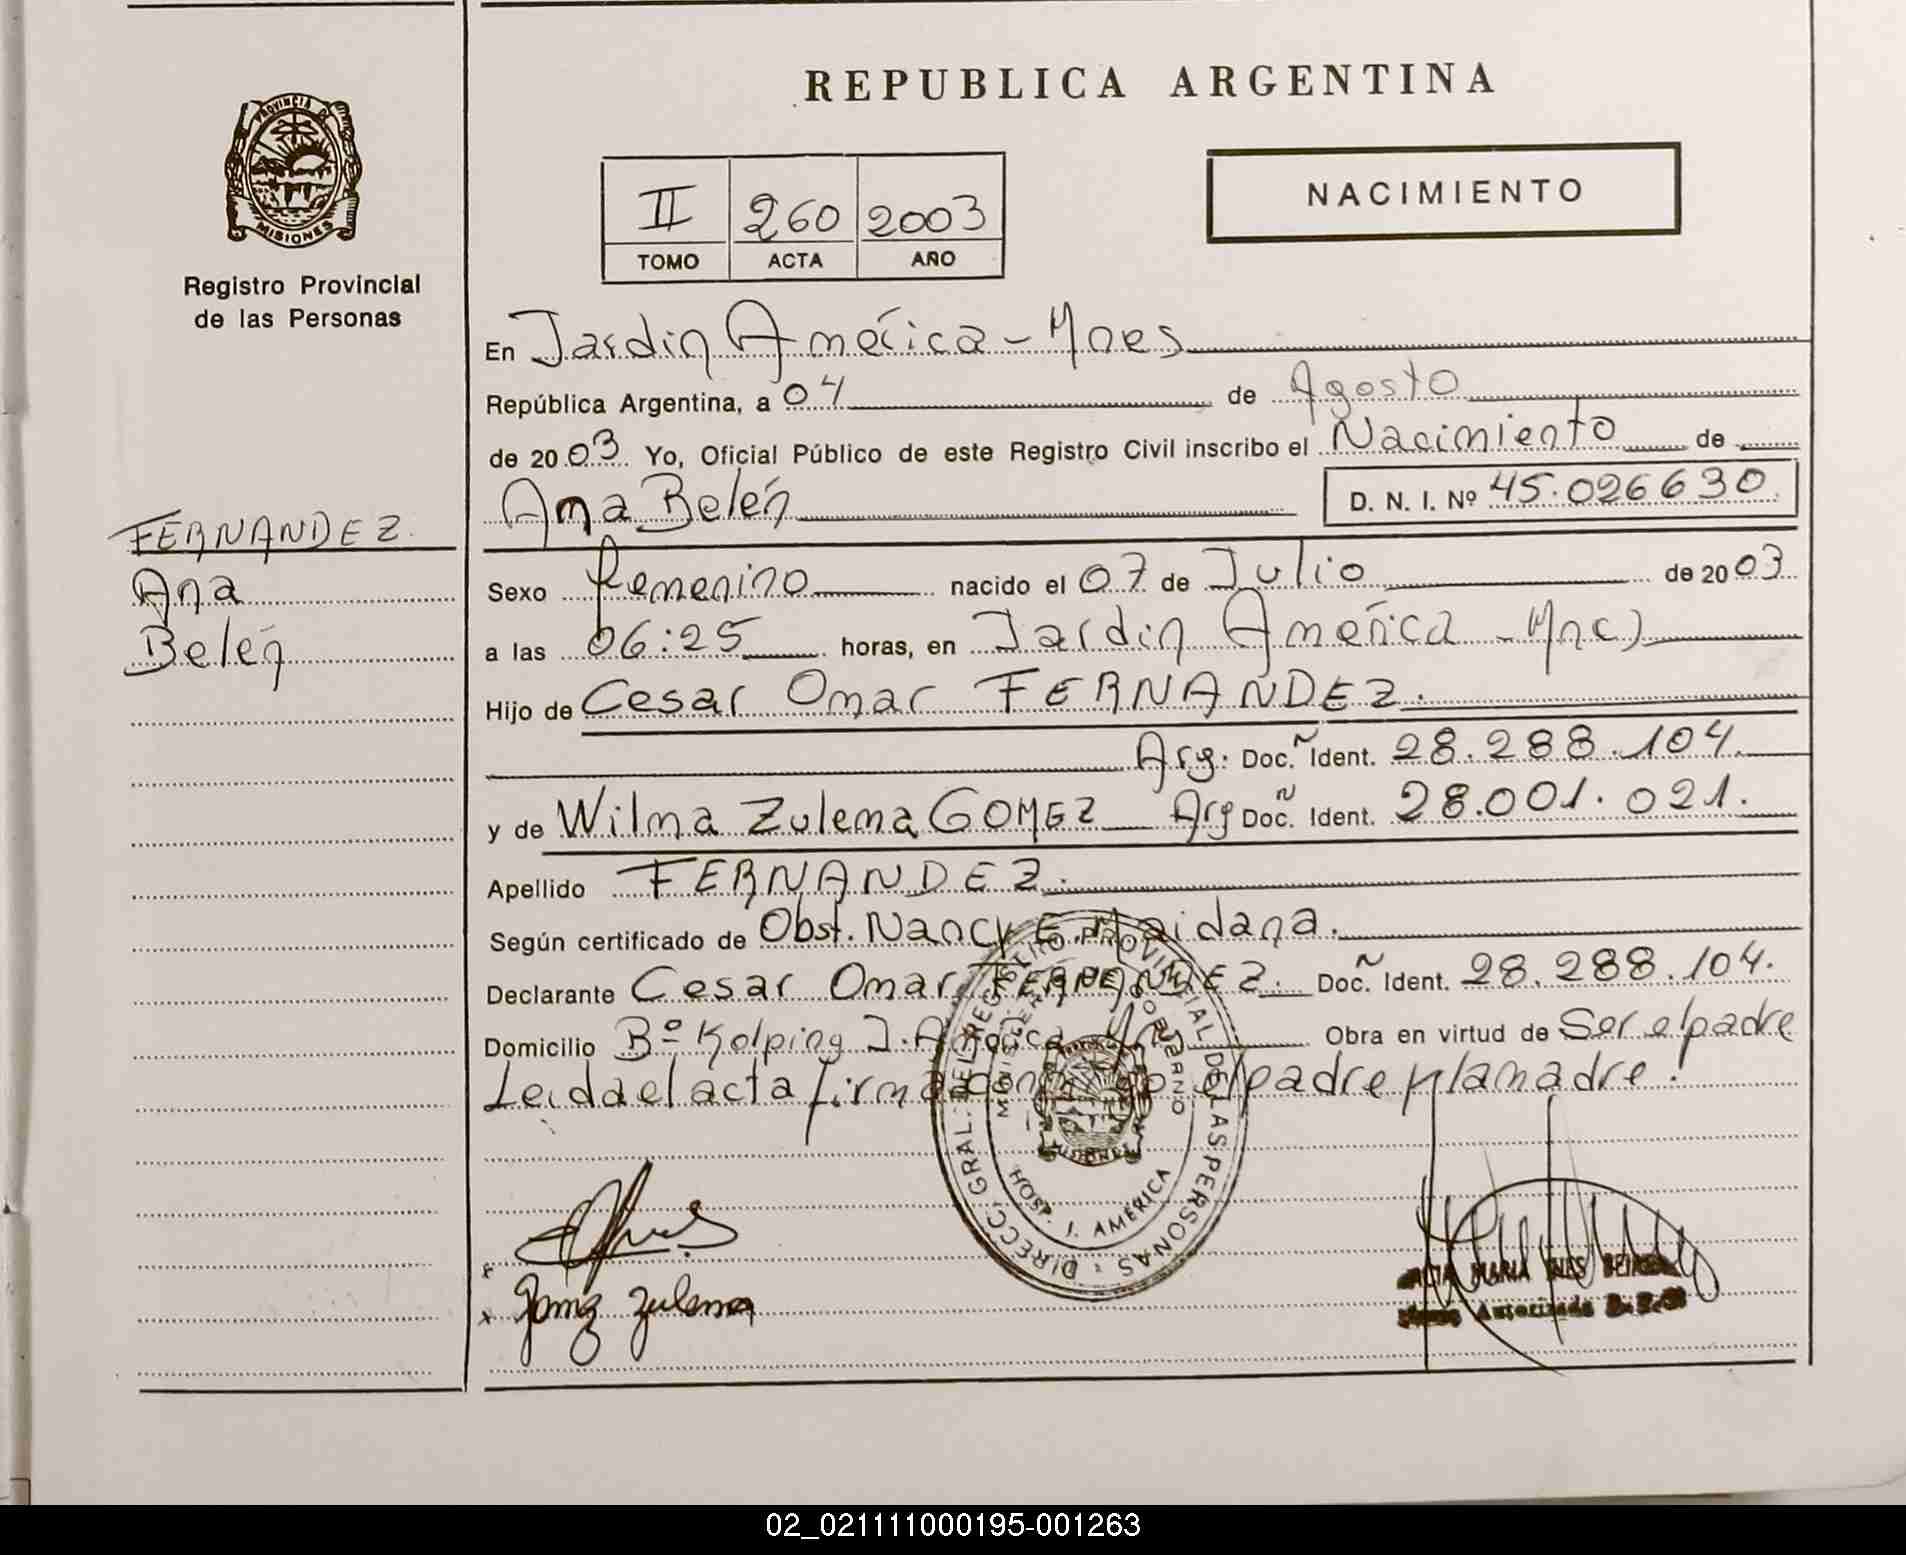 REPUBLICA ARGENTINA
PROVINCIA D
MISIONES
Registro Provincial
de las Personas
II 260 2003
TOMO ACTA AÑO
NACIMIENTO
En Jardin América - Mnes
República Argentina, a 04 de Agosto
de 2003 Yo, Oficial Público de este Registro Civil inscribo el Nacimiento de
Ana Belén D. N. I. Nº 45.026630
FERNANDEZ
Ana
Belén
Sexo femenino nacido el 07 de Julio de 2003
a las 06:25 horas, en Jardin América - Mnes
Hijo de Cesar Omar FERNANDEZ.
Arg. Doc. Ident. 28.288.104.
y de Wilma Zulema GOMEZ Arg Doc. Ident. 28.001.021.
Apellido FERNANDEZ.
Según certificado de Obst. Nancy E. Maidana.
Declarante Cesar Omar FERNANDEZ. Doc. Ident. 28.288.104.
Domicilio Bº Kolping J. América Obra en virtud de Ser el padre
Leida el acta firma el padre y la madre.
DIRECC. GRAL. DEL REGISTRO PROVINCIAL DE LAS PERSONAS
MINISTERIO GOBIERNO
MISIONES
HOSP. J. AMÉRICA
x
x Gomez Zulema
MARIA INES
Autorizada
02_021111000195-001263